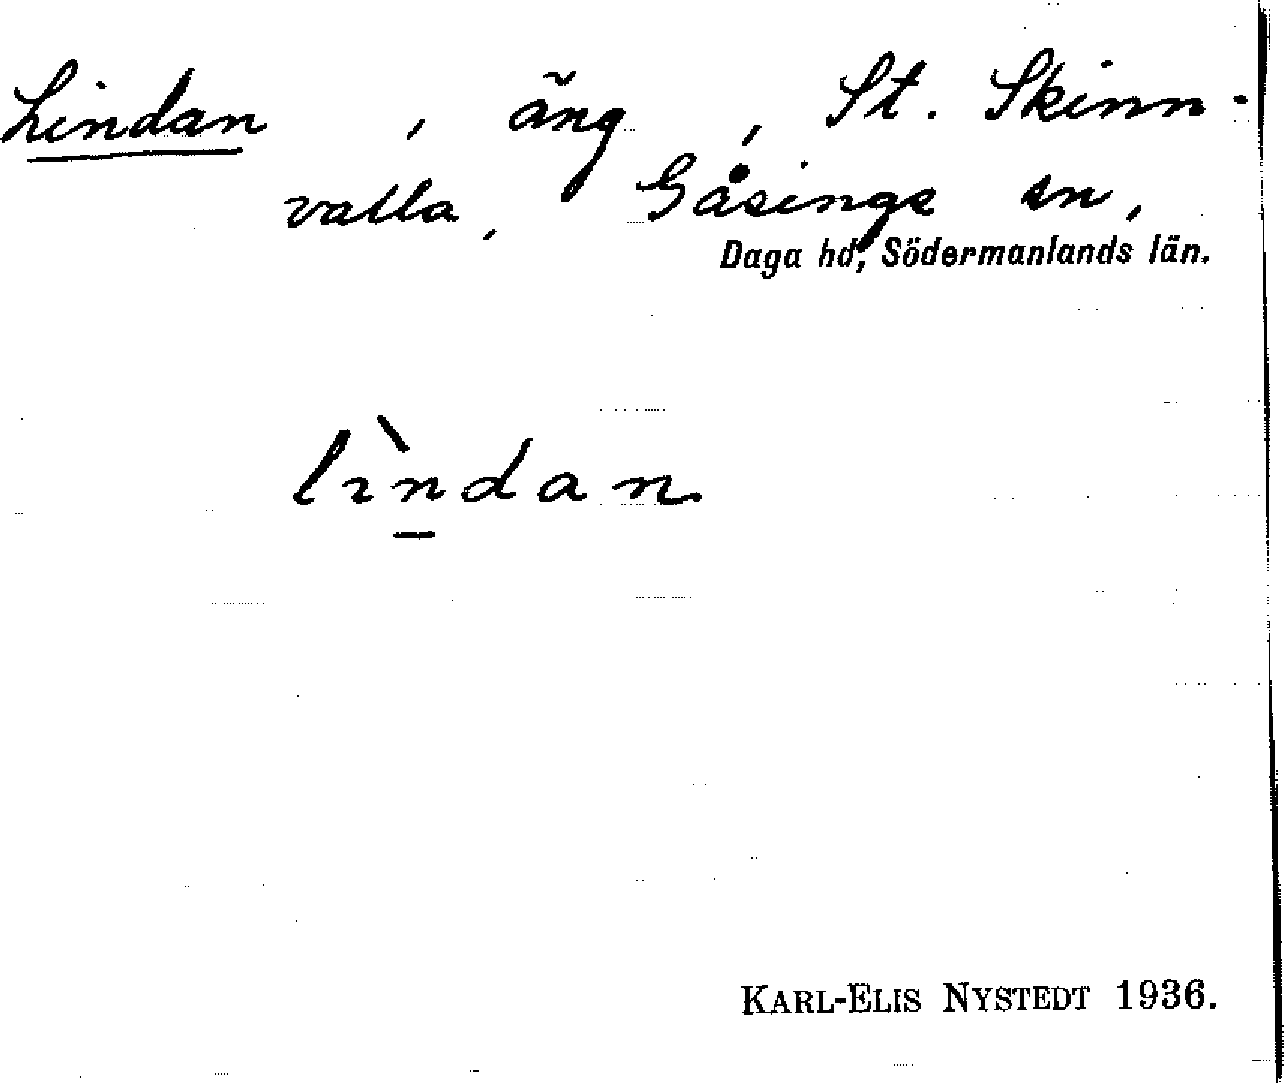 Lindan , äng , St. Skinn-
valla, Gåsinge sn,
Daga hd, Södermanlands län.
lìn̲dan
KARL-ELIS NYSTEDT 1936.